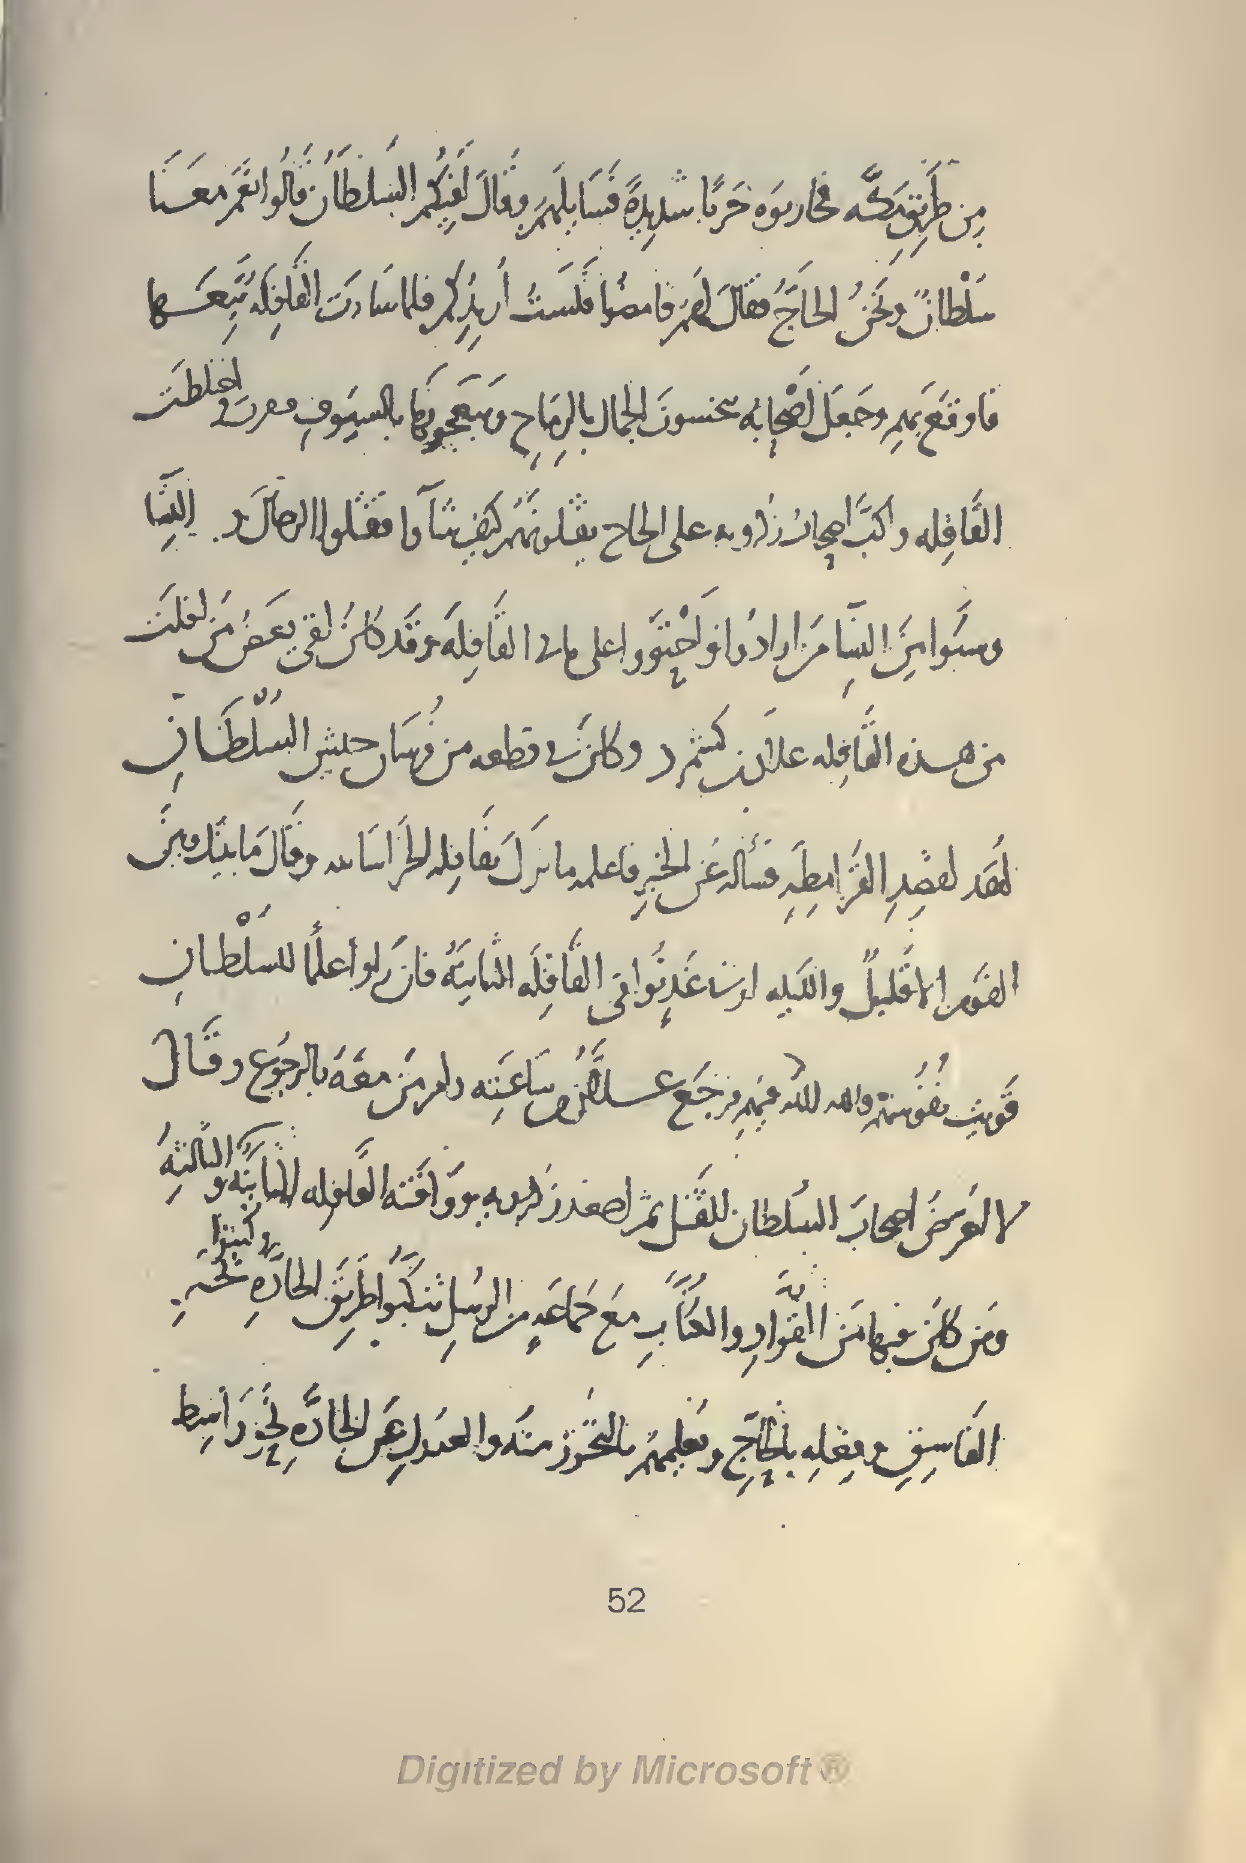 مِن طَرِيق مَكَّه فحاربوه حَربًا شديدةً فسَايلهم وقالَ أفيكُم السُلطَان قالُوا نعَم معَنَا
سُلْطانٌ ونحنُ الحاجُّ فقالَ لهم فامضُوا فلَستُ أريدُكم فلما سَارت القَافِلَه تَبِعَها
فاوقَعَ بهم وجَعَلَ اصْحابُه ينخسونَ الجمال بالرِمَاح ويَبعَجونَها بالسيوفِ فاختلطَت
القَافِله واكَبَّ اصحابُ زكرويه على الحاج يقتلونَهُم كيف شَآوا فقتَلوا الرجال و النِسَا
وسبَوا مِنَ النِسَآ مَن ارادُوا واحْتَوَوا على ما في القَافِلَه وقَد كانَ لقى بعضُ مَن افلَتَ
من هذه القَافِله علَّان بن كشمرد وكان في قطعه من فُرسَان جيش السُلْطَانِ
القَومِ الا قليلٌ والليله او في غدٍ تُوافى القَافِلَه الثانيَةُ فان رأوا علَمًا للسُلْطانِ
قَويت نفُوسُهم والله الله فيهم فرجَع علَّان من سَاعَتِه وامر مَن معَهُ بالرجُوع وقال
لا اعَرضُ اصحابَ السُلطان للقَتل ثم اصعد زكرويه ووَافَته القَافِله الثانيَه والثالثهُ
ومَن كانَ فيها مَن القُوّادِ والكُتّابِ معَ جماعَهٍ من الرسُلِ تنكَبُوا طَرِيق الجادَّهِ كتبوا في نحبَر
الفَاسِقِ وفِعلِه بالحَاجِّ ويُعلِمهُم بالتحَرُّز منهُ والعدُولِ عَن الجادَّهِ نحو وَاسِط
52
Digitized by Microsoft ®